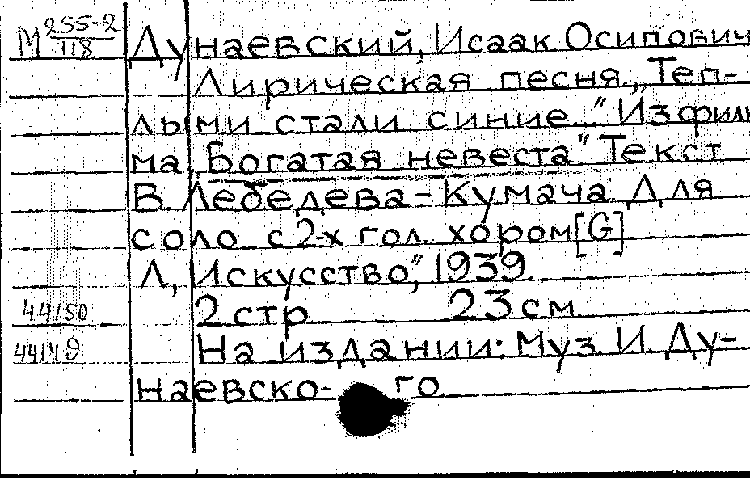 М 255-2/118
Дунаевский, Исаак Осипович
Лирическая песня „Теп-
лыми стали синие..." Из филь-
ма „Богатая невеста" Текст
В. Лебедева-Кумача Для
соло с 2-х гол. хором [G]
Л, „Искусство", 1939.
44150 2 стр 23 см
На издании: Муз И Ду-
наевско- го